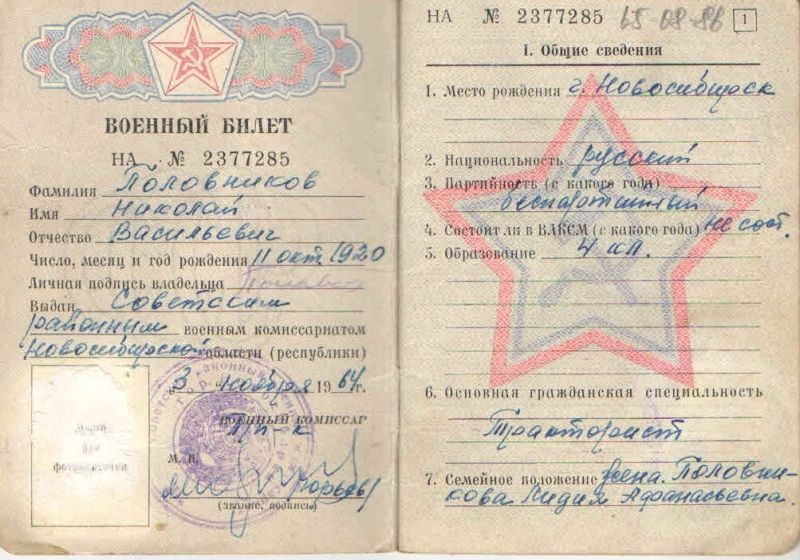 ВОЕННЫЙ БИЛЕТ
НА № 2377285
Фамилия Половников
Имя Николай
Отчество Васильевич
Число, месяц и год рождения 11 окт. 1920
Личная подпись владельца
Выдан Советским
районным военным комиссариатом
Новосибирской области (республики)
3 ноября 1964 г.
ВОЕННЫЙ КОМИССАР
П/п-к
М. П.
Юрьев
(звание, подпись)
Место
для
фотокарточки
НА № 2377285 65-08-86 1
I. Общие сведения
1. Место рождения г. Новосибирск
2. Национальность русский
3. Партийность (с какого года)
беспартийный
4. Состоит ли в ВЛКСМ (с какого года) не сост.
5. Образование 4 кл.
6. Основная гражданская специальность
Тракторист
7. Семейное положение жена. Половни-
кова Лидия Афанасьевна.